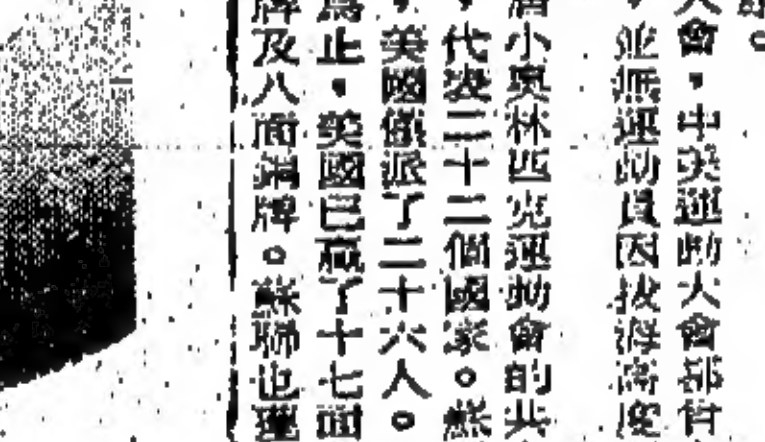 大會，中央運動大會都曾
，並派運動員因拔海高度
小奧林匹克運動會的共
，代表二十二個國家。蘇
，美國僅派了二十六人。
爲止，美國已贏了十七面
牌及八面銅牌。蘇聯也運